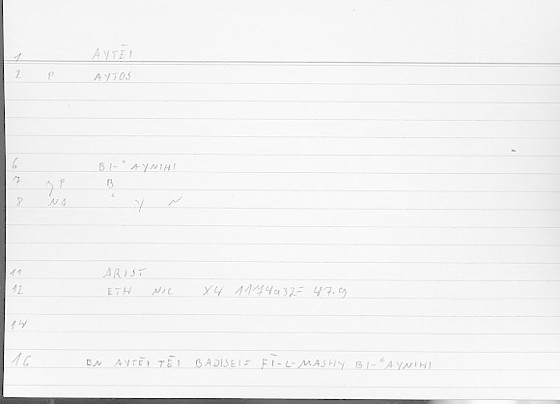 1 AYTĒI
2 P AYTOS
6 BI-ʿAYNIHI
7 gP B
8 NS ʿ y N
11 ARIST
12 ETH NIC X4 1174a32= 47.9
14
16 EN AYTĒI TĒI BADISEI= FĪ-L-MASHY BI-ʿAYNIHI